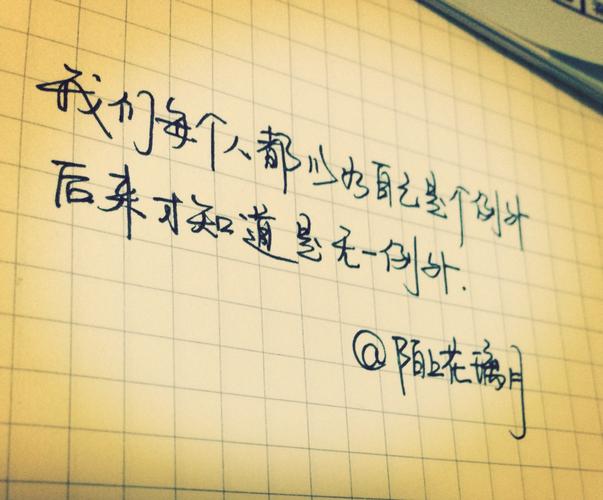 我们每个人都以为自己是个例外
后来才知道是无一例外.
@陌上花璃月